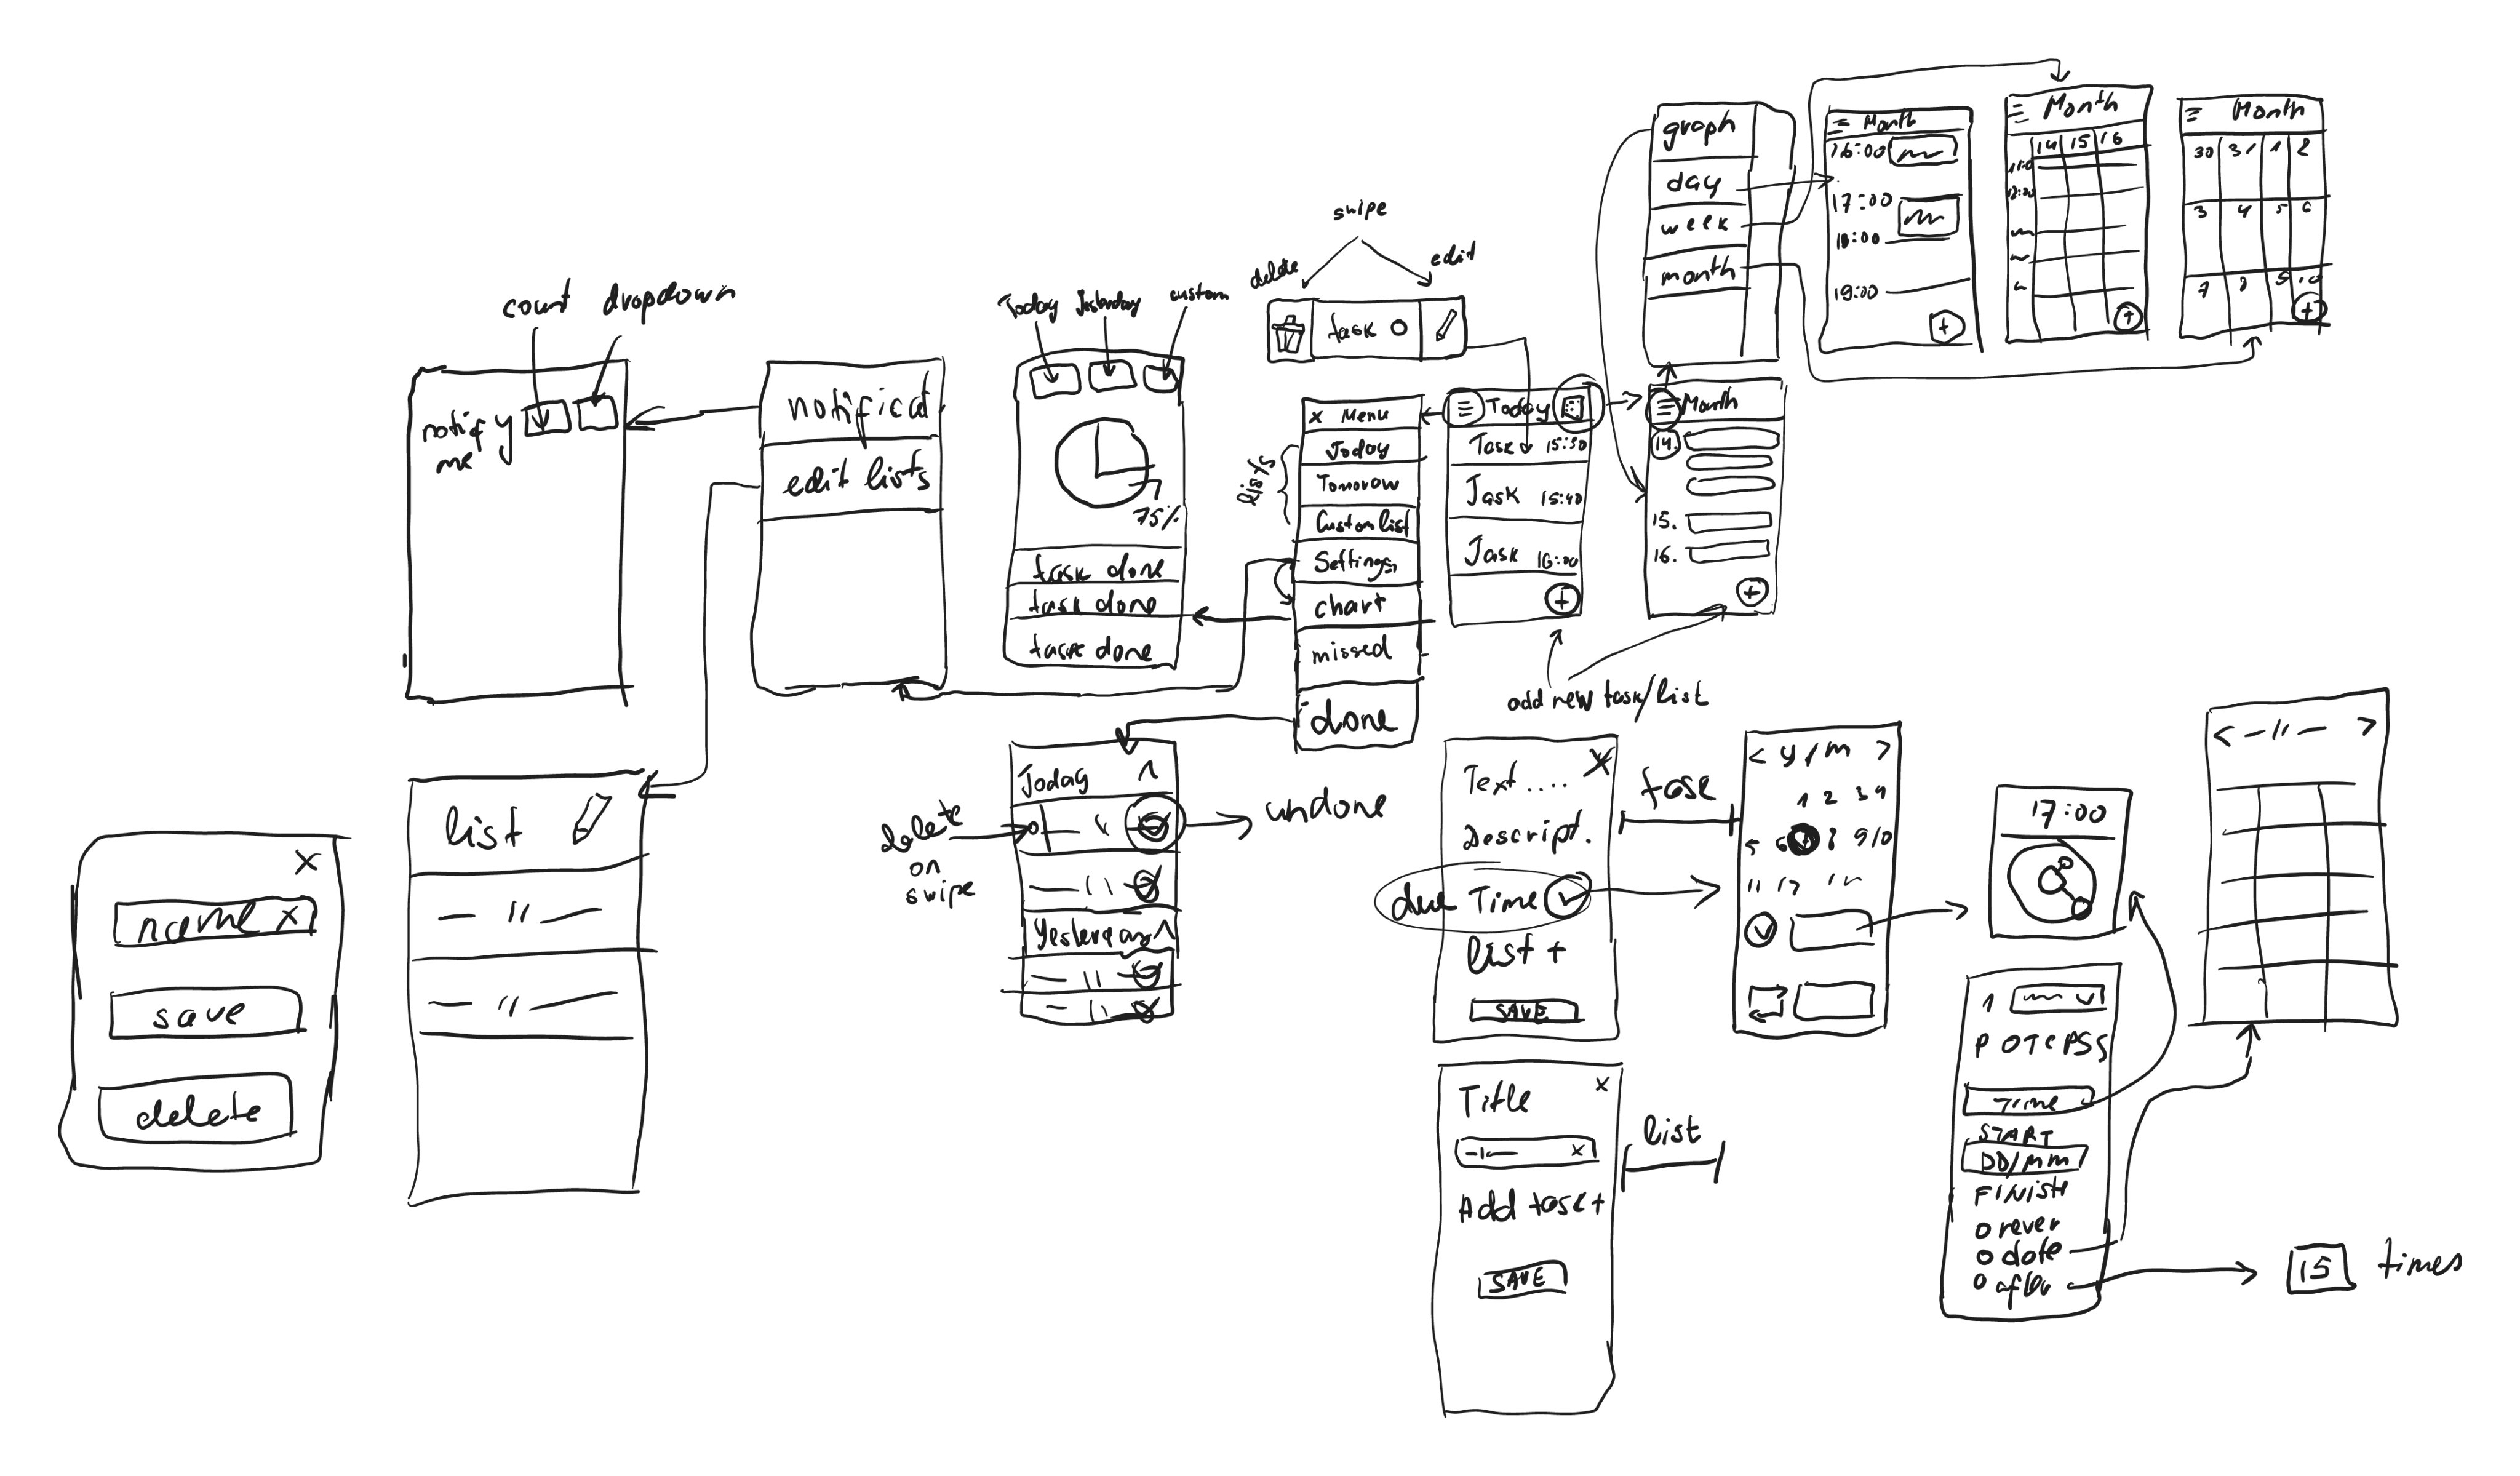 count dropdown
notify
me
notificat
edit lists
Today Yesterday custom
75%
task done
task done
task done
swipe
delete edit
task
x Menu
Today
Tomorow
Custom list
Settings
chart
missed
done
lists
Today
Task 15:30
Task 15:40
Task 16:00
add new task/list
graph
day
week
month
Month
14.
15.
16.
Month
16:00
17:00
18:00
19:00
Month
14 15 16
Month
30 31 1 2
3 4 5 6
7 8
list
x
name x
save
delete
Today
delete
on
swipe
undone
Yesterday
Text .... x
Descript.
due Time
list +
SAVE
task
< y/m >
1 2 3 4
5 6 8 9 10
17:00
< — 11 — >
1
TIME
START
DD/MM
FINISH
date
15 times
Title x
x
Add task +
SAVE
list